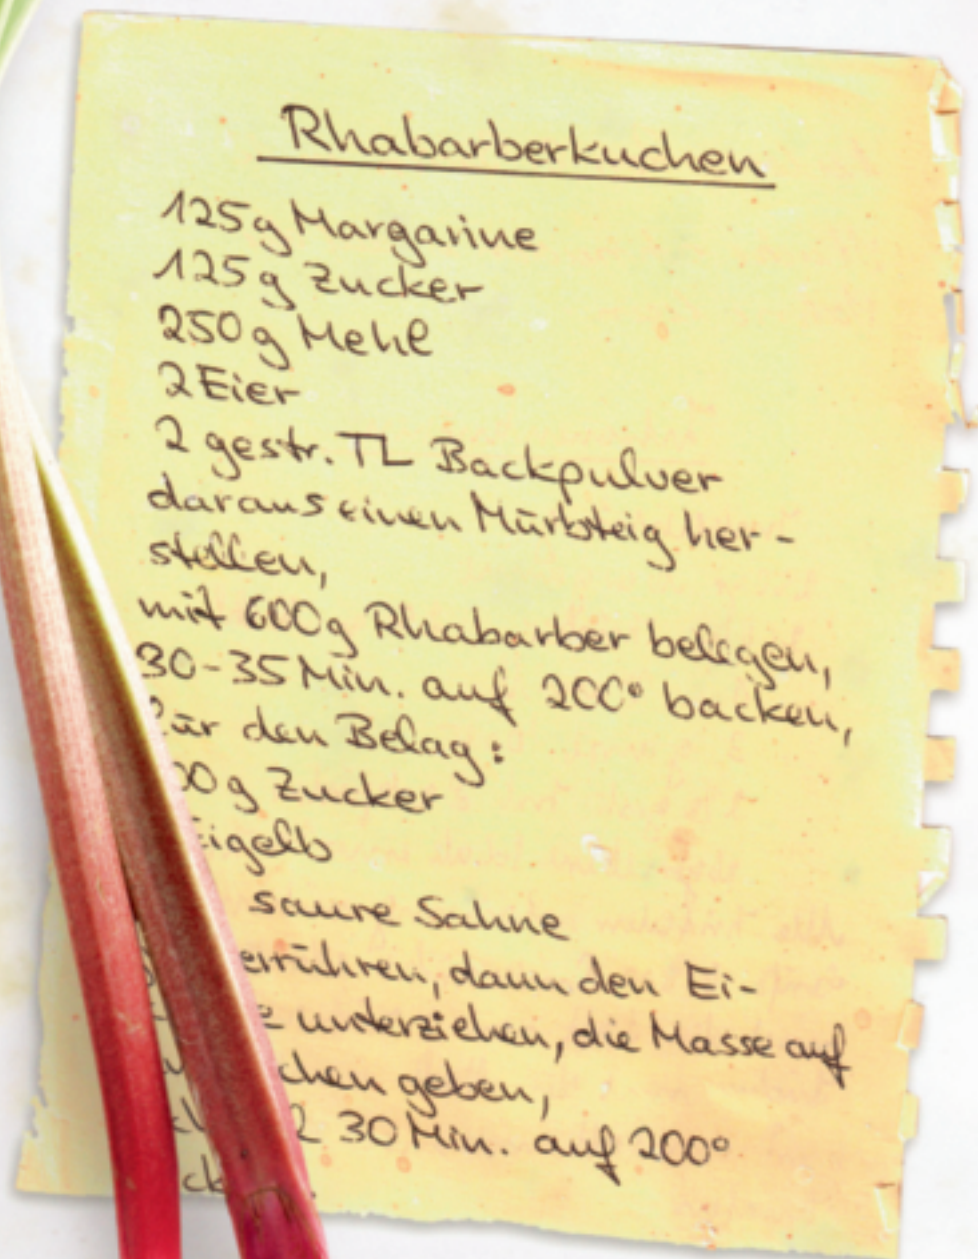 Rhabarberkuchen
125g Margarine
125g Zucker
250g Mehl
2 Eier
2 gestr. TL Backpulver
daraus einen Mürbteig her-
stellen,
mit 600g Rhabarber belegen,
30-35 Min. auf 200° backen,
für den Belag:
00g Zucker
Eigelb
saure Sahne
errühren, dann den Ei-
unterziehen, die Masse auf
chen geben,
30 Min. auf 200°